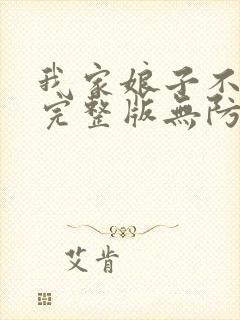 我家娘子不
完整版無防
艾肯